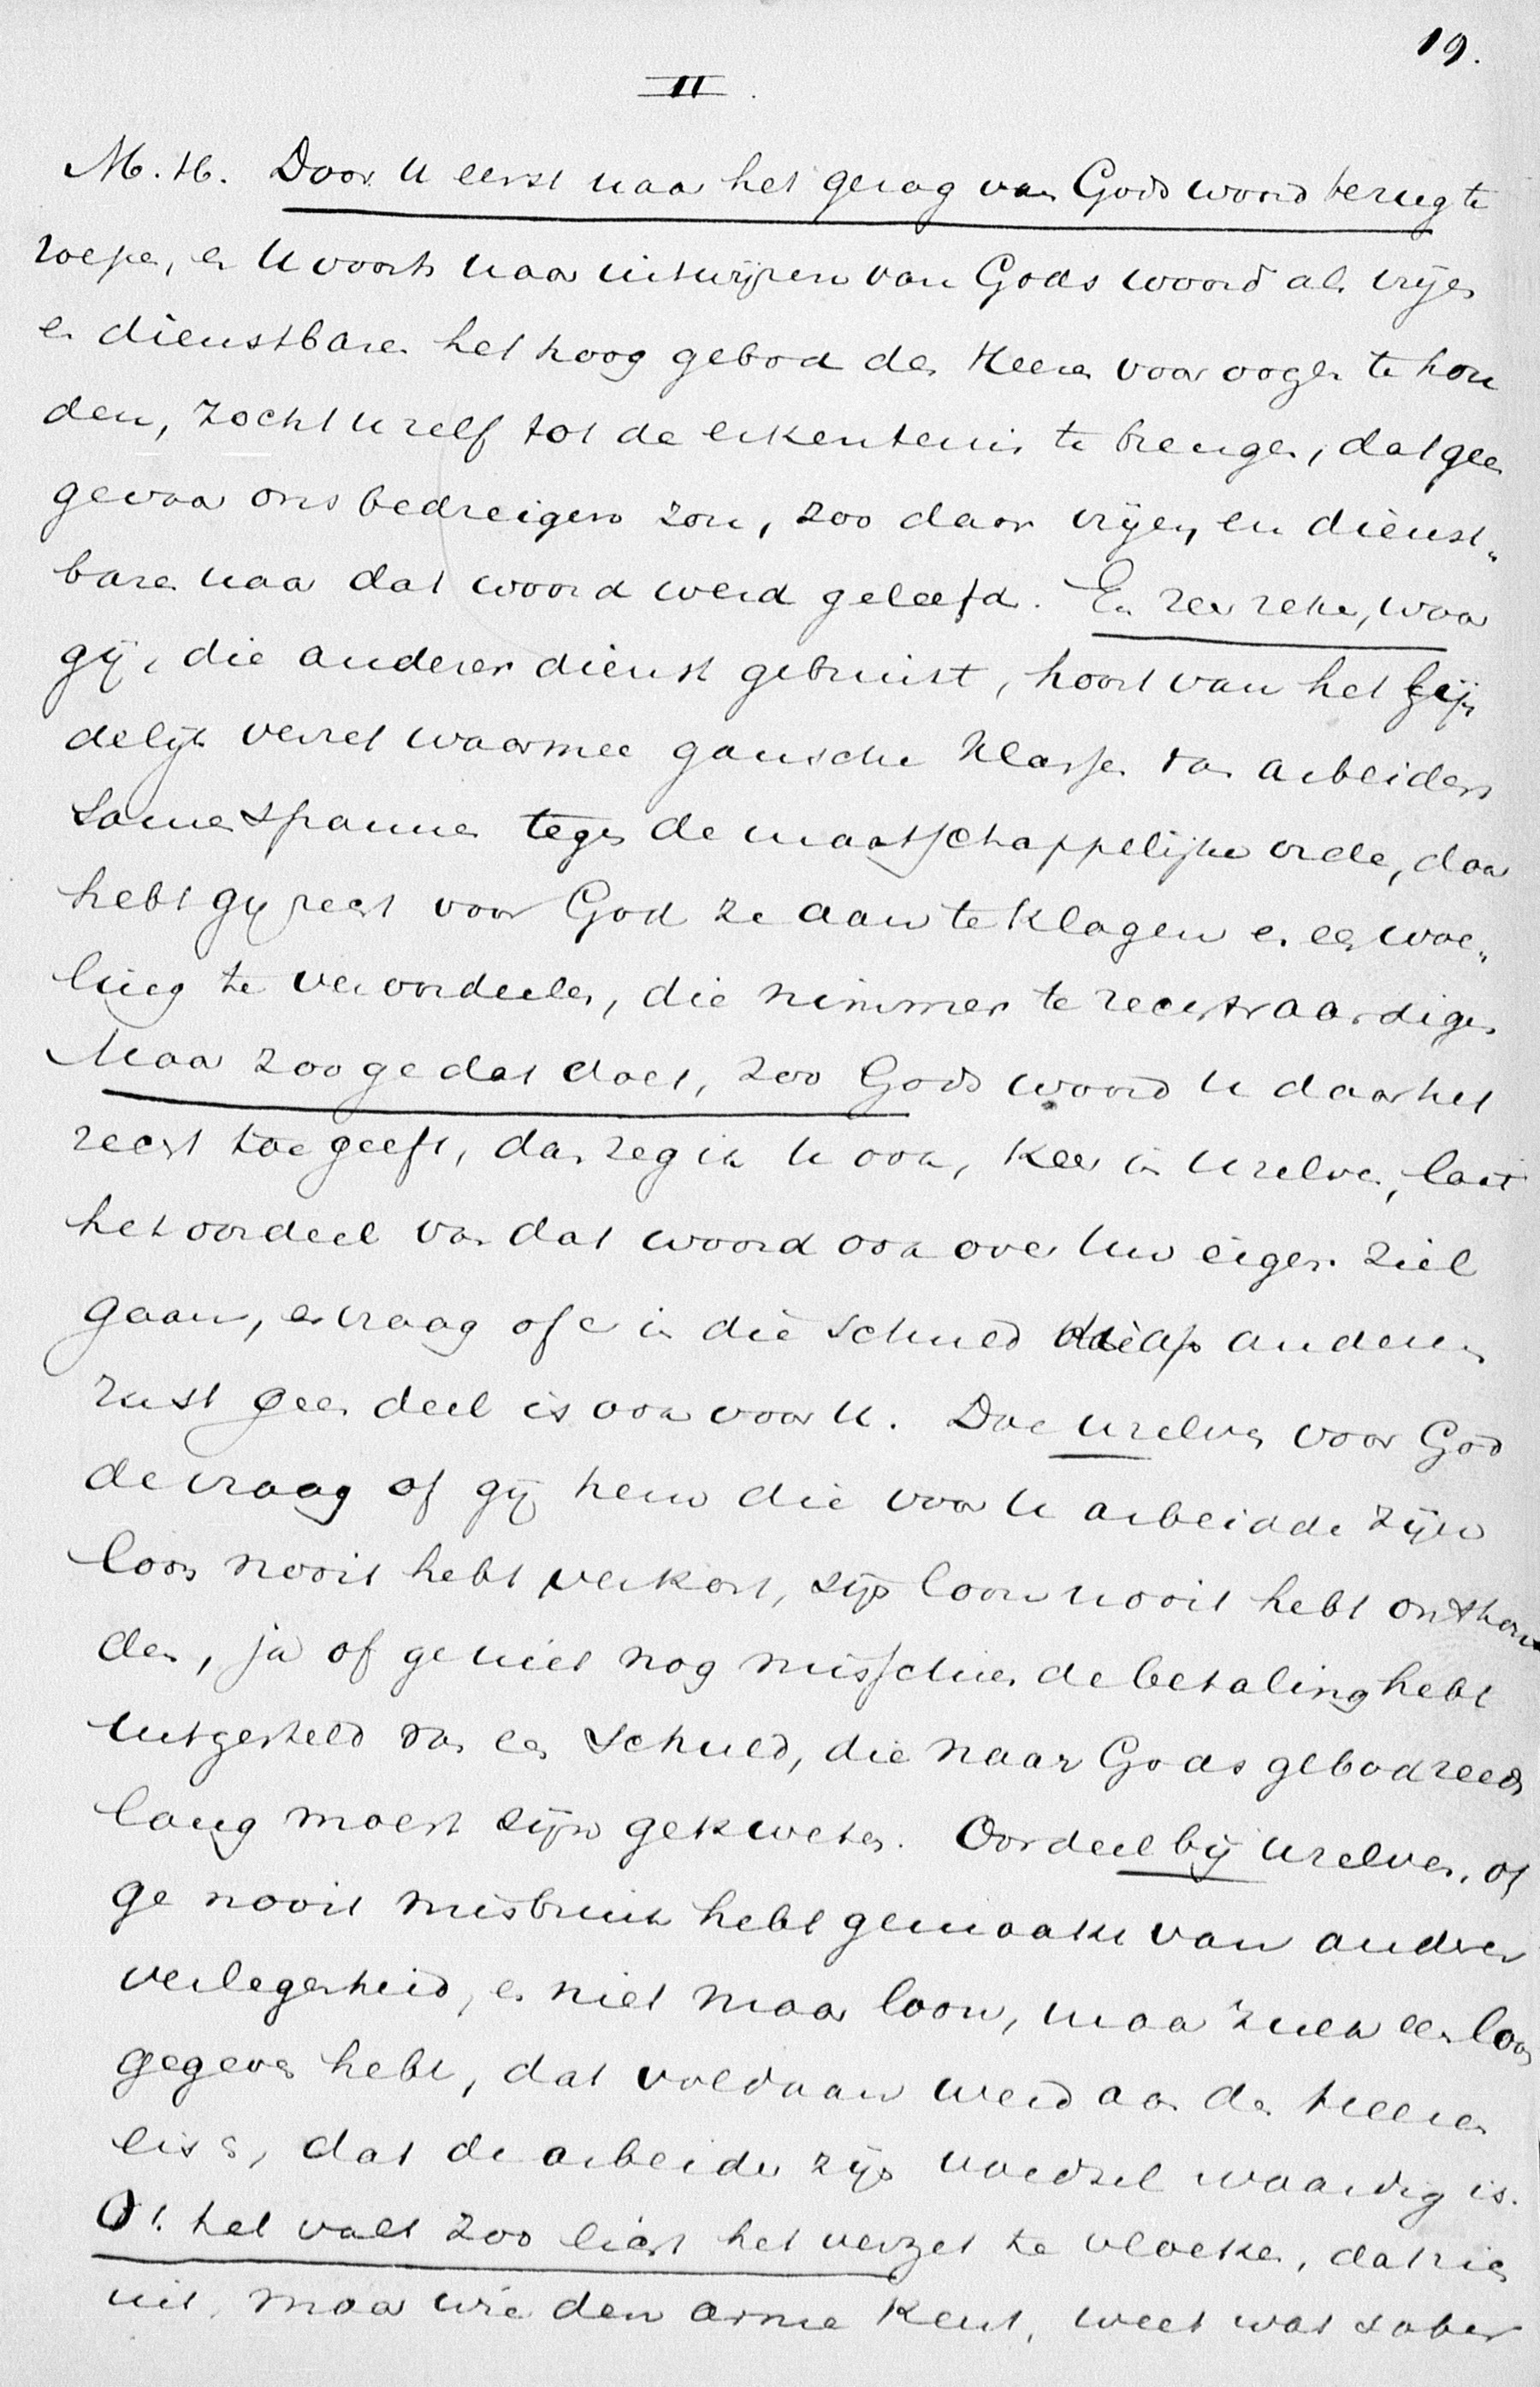 19.
II.
M. H. Door U eerst naar het gezag van Gods woord terug te
roepen, en U voorts naar uitwijzen van Gods woord als vrijen
en dienstbaren het hoog gebod des Heeren voor oogen te hou
den, zocht U zelf tot de erkentenis te brengen, dat geen
gevaar ons bedreigen zou, zoo door vrijen en dienst„
baren naar dat woord werd geleefd. En zeer zeker, waar
gij, die anderer dienst gebruikt, hoort van het
delijk verzet waarmee gansche klassen van arbeiders
samenspannen tegen de maatschappelijke orde, daar
hebt gij recht voor God ze aan te klagen en een woe„
ling te veroordeelen, die nimmer te rechtvaardigen
Maar zoo ge dat doet, zoo Gods woord U daar het
recht toe geeft, dan zeg ik U ook, keer in Uzelven, laat
het oordeel van dat woord ook over Uw eigen ziel
gaan, en vraag of er in die schuld die op anderen
rust geen deel is ook voor U. Doe Uzelven voor God
de vraag of gij hem die voor U arbeidde zijn
loon nooit hebt verkort, zijn loon nooit hebt onthou
den, ja of ge niet nog misschien de betaling hebt
uitgesteld van een schuld, die naar Gods gebod reeds
lang moest zijn gekweten. Oordeel bij Uzelven, of
ge nooit misbruik hebt gemaakt van andrer
verlegenheid, en niet maar loon, maar zulk een loon
gegeven hebt, dat voldaan werd aan des Heeren
eisch, dat de arbeider zijn voedsel waardig is.
O! het valt zoo licht het verzet te vloeken, dat hier
uit, maar wie den arme kent, weet wat sober